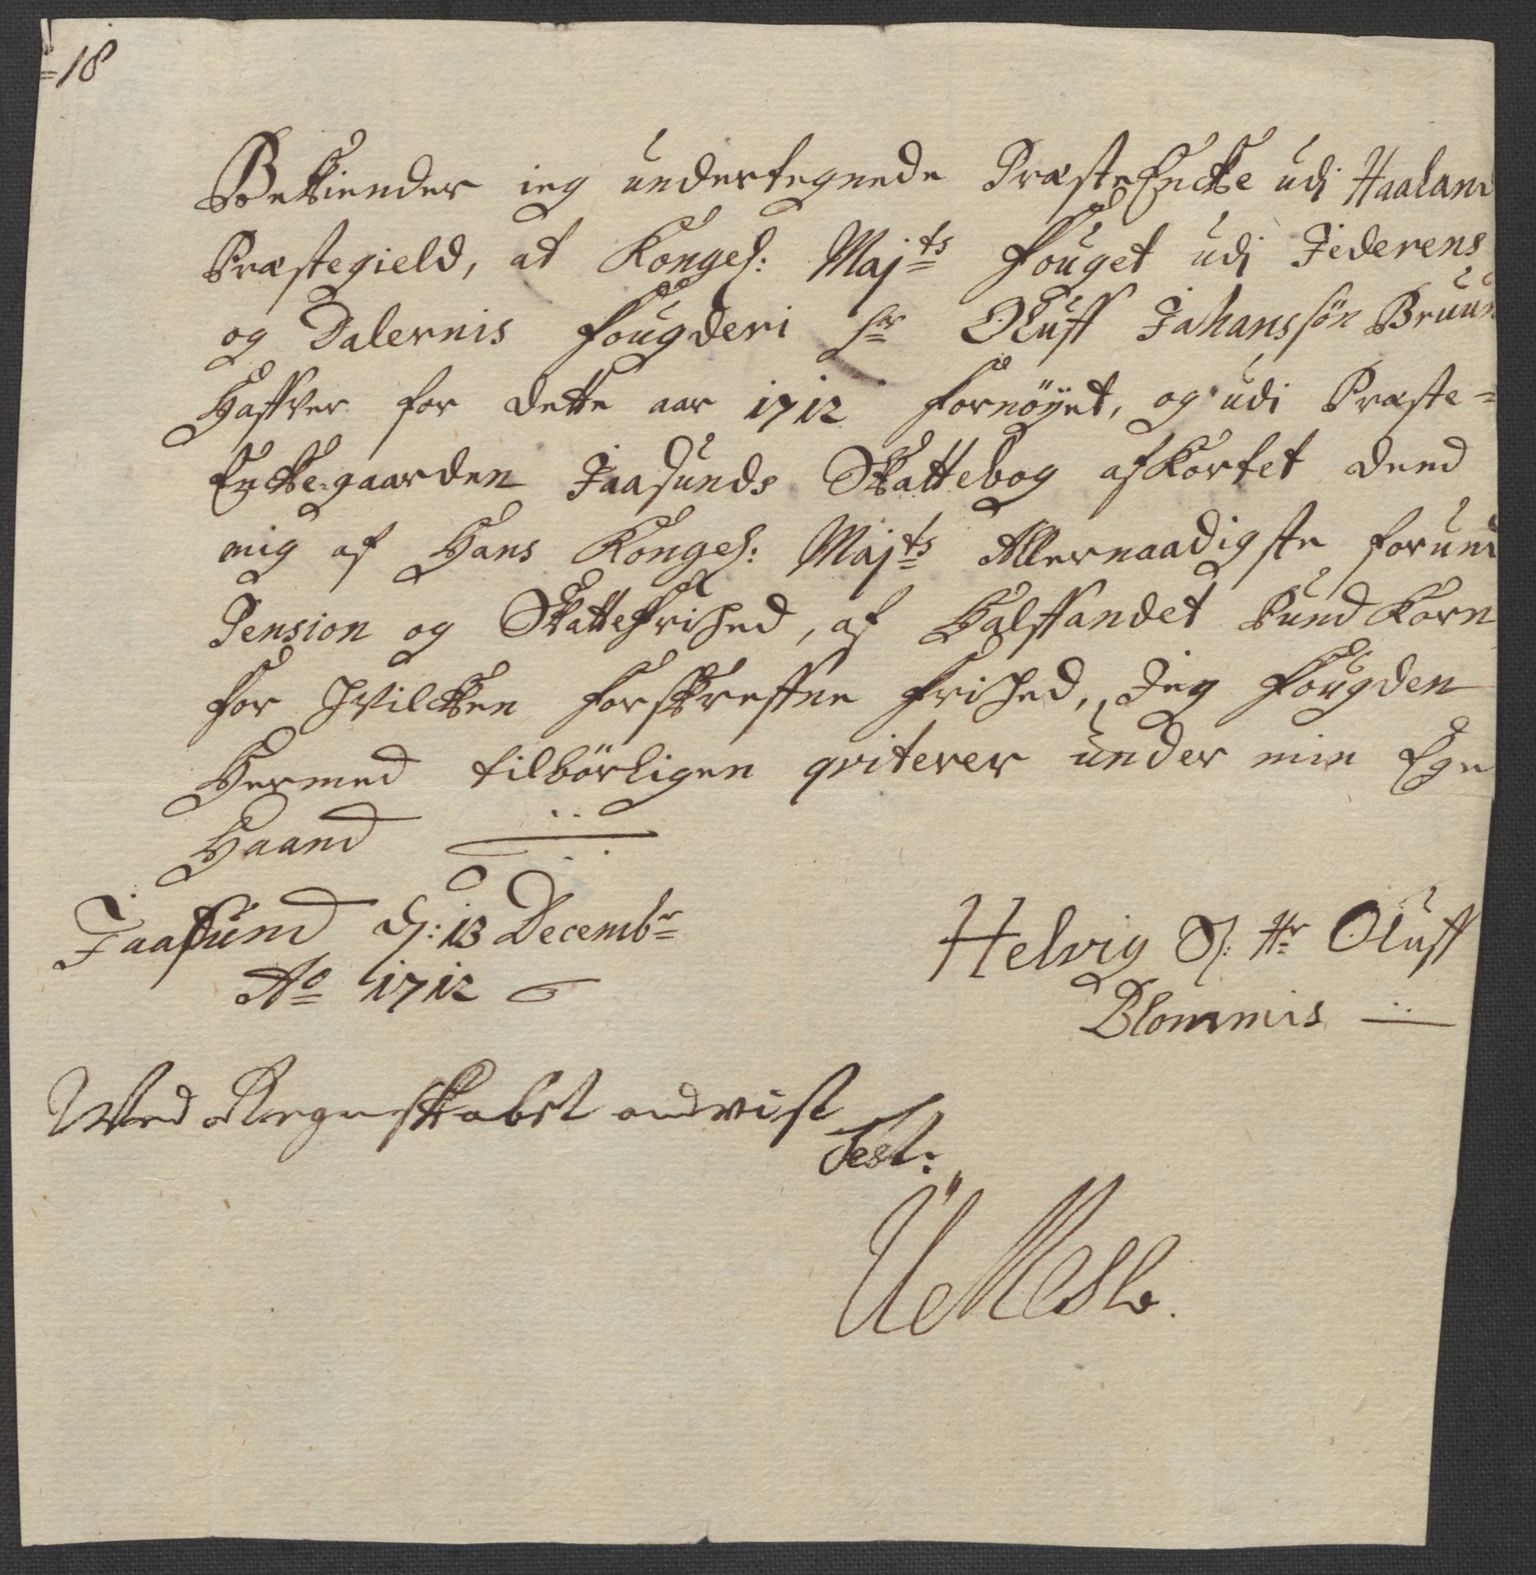 =18
Bekiender ieg undertegnede PræsteEncke udi Haaland
Præstegield, at Kongel: Maj:ts Fouget udi Jederens
og Dalernis Fougderi hr Oluff Jahanssøn Bruun
Haffver for dette aar 1712 fornøÿet, og udi Præste=
Encke:gaarden Jaasunds Skattebog afkortet dend
mig af Hans Kongel: Maj:ts Allernaadigste forund
Pension og Skattefrihed, af Halffandet Pund Korn
for hvilcken forskreffne frihed, Jeg Fougden
Hermed tilbörligen qviterer under min Egn
Haand
Jaasund d: 13 Decembr
Ao 1712
Helvig Sl: Hr Oluff
Blommis
Ved Regnskabet andvist
Test: